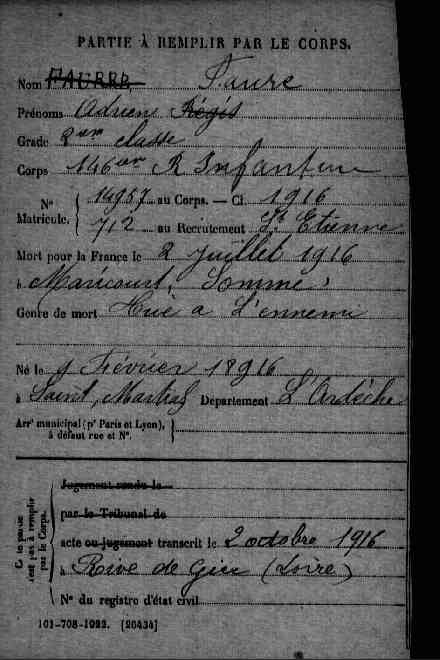 PARTIE À REMPLIR PAR LE CORPS.
Nom FAURE Faure
Prénoms Adrien Régis
Grade 2eme classe
Corps 146eme R Infanterie
Nº Matricule. 14957 au Corps. — Cl. 1916
712 au Recrutement St Etienne
Mort pour la France le 2 juillet 1916
à Maricourt, Somme,
Genre de mort Tué a L'ennemi
Né le Février 1896
à Saint, Martial Département L'Ardèche
Arrt municipal (pr Paris et Lyon),
à défaut rue et Nº.
Ce cadre n'est pas à remplir par le Corps.
Jugement rendu le
par le Tribunal de
acte ou jugement transcrit le 2 octobre 1916
à Rive de Gier (Loire)
Nº du registre d'état civil
101-708-1922. [26434]